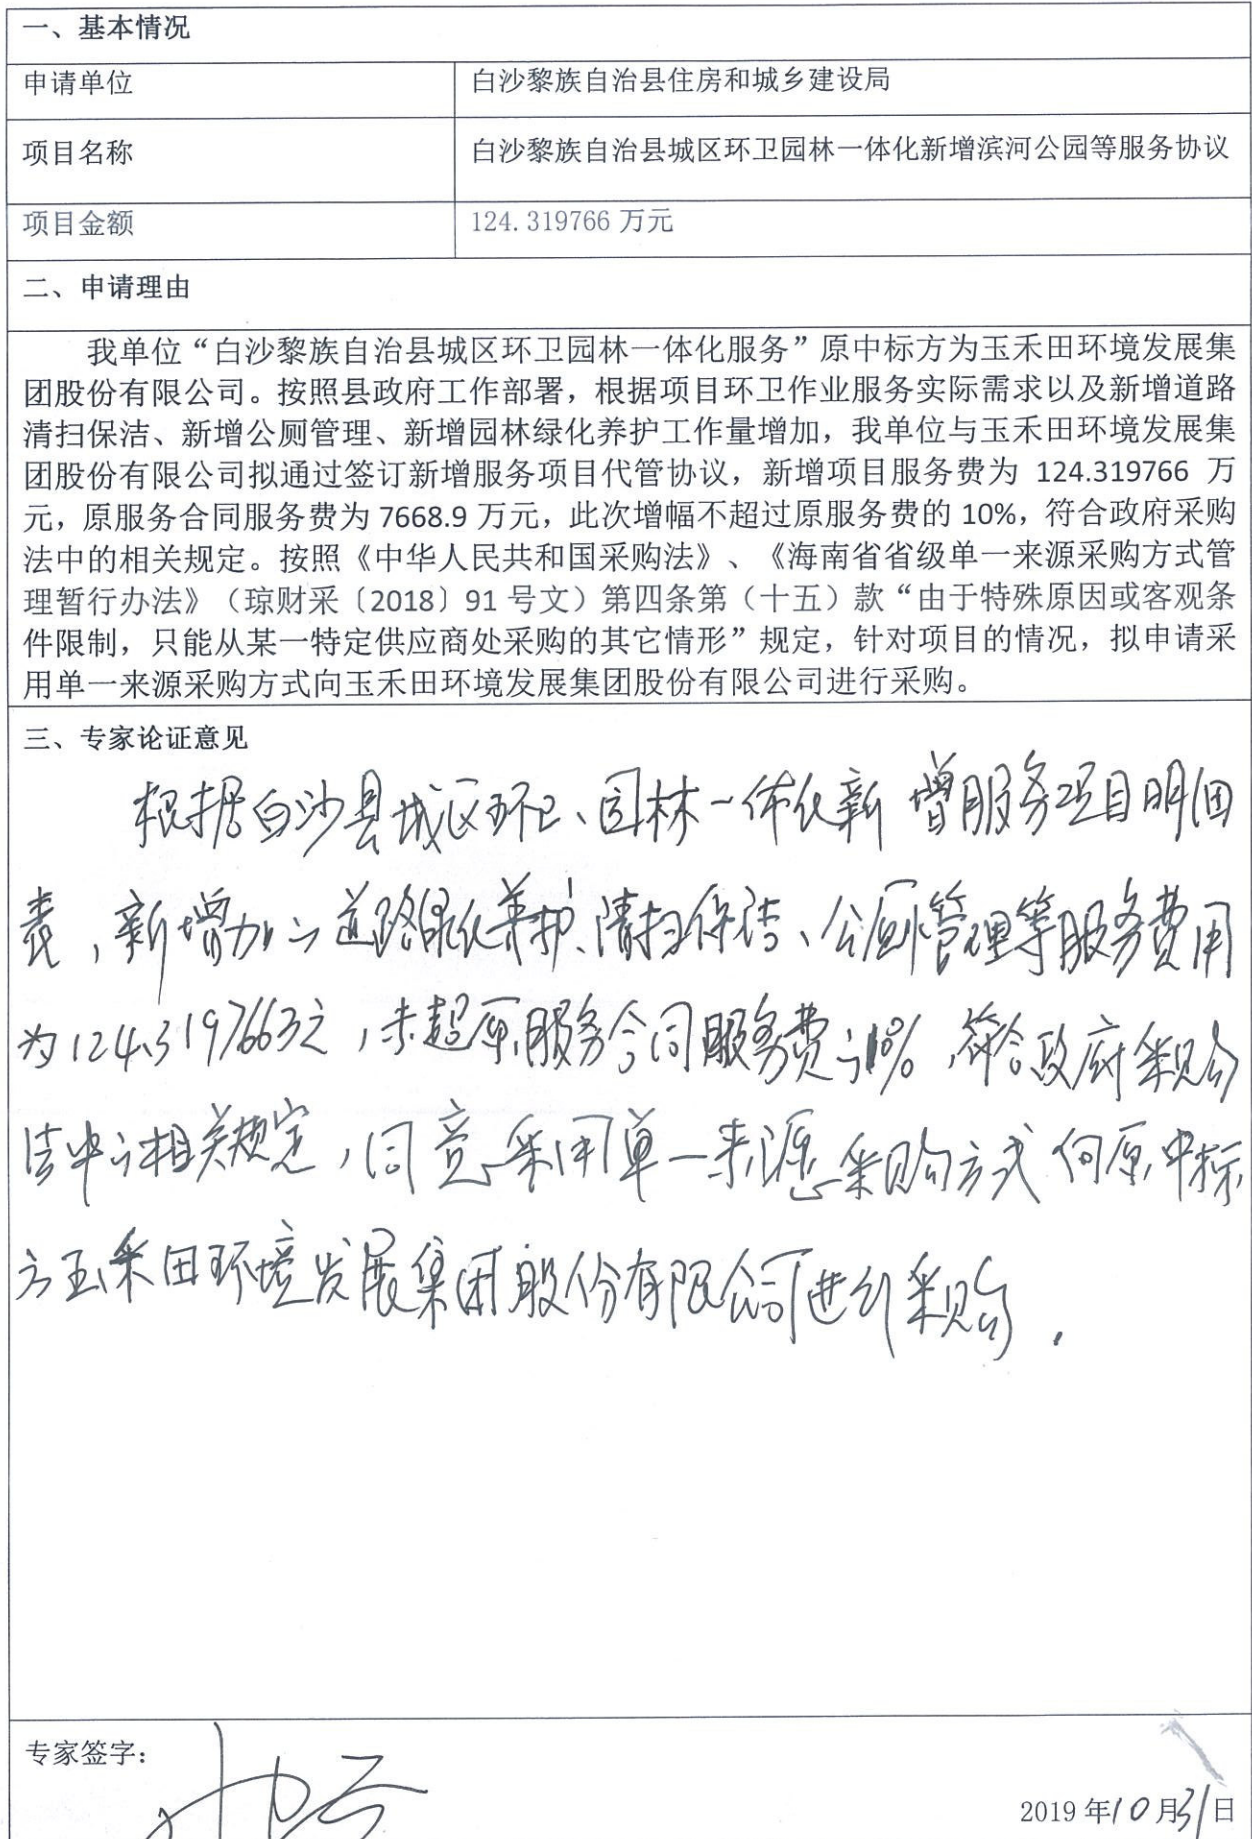 一、基本情况
申请单位
白沙黎族自治县住房和城乡建设局
项目名称
白沙黎族自治县城区环卫园林一体化新增滨河公园等服务协议
项目金额
124.319766 万元
二、申请理由
我单位“白沙黎族自治县城区环卫园林一体化服务”原中标方为玉禾田环境发展集
团股份有限公司。按照县政府工作部署，根据项目环卫作业服务实际需求以及新增道路
清扫保洁、新增公厕管理、新增园林绿化养护工作量增加，我单位与玉禾田环境发展集
团股份有限公司拟通过签订新增服务项目代管协议，新增项目服务费为 124.319766 万
元，原服务合同服务费为 7668.9 万元，此次增幅不超过原服务费的 10%，符合政府采购
法中的相关规定。按照《中华人民共和国采购法》、《海南省省级单一来源采购方式管
理暂行办法》（琼财采〔2018〕91 号文）第四条第（十五）款“由于特殊原因或客观条
件限制，只能从某一特定供应商处采购的其它情形”规定，针对项目的情况，拟申请采
用单一来源采购方式向玉禾田环境发展集团股份有限公司进行采购。
三、专家论证意见
根据白沙县城区环卫、园林一体化新增服务项目明细
表，新增加的道路绿化养护、清扫保洁、公厕管理等服务费用
为124.319766万元，未超原服务合同服务费的10%，符合政府采购
法中的相关规定，同意采用单一来源采购方式向原中标
方玉禾田环境发展集团股份有限公司进行采购。
专家签字：
2019 年10月31日